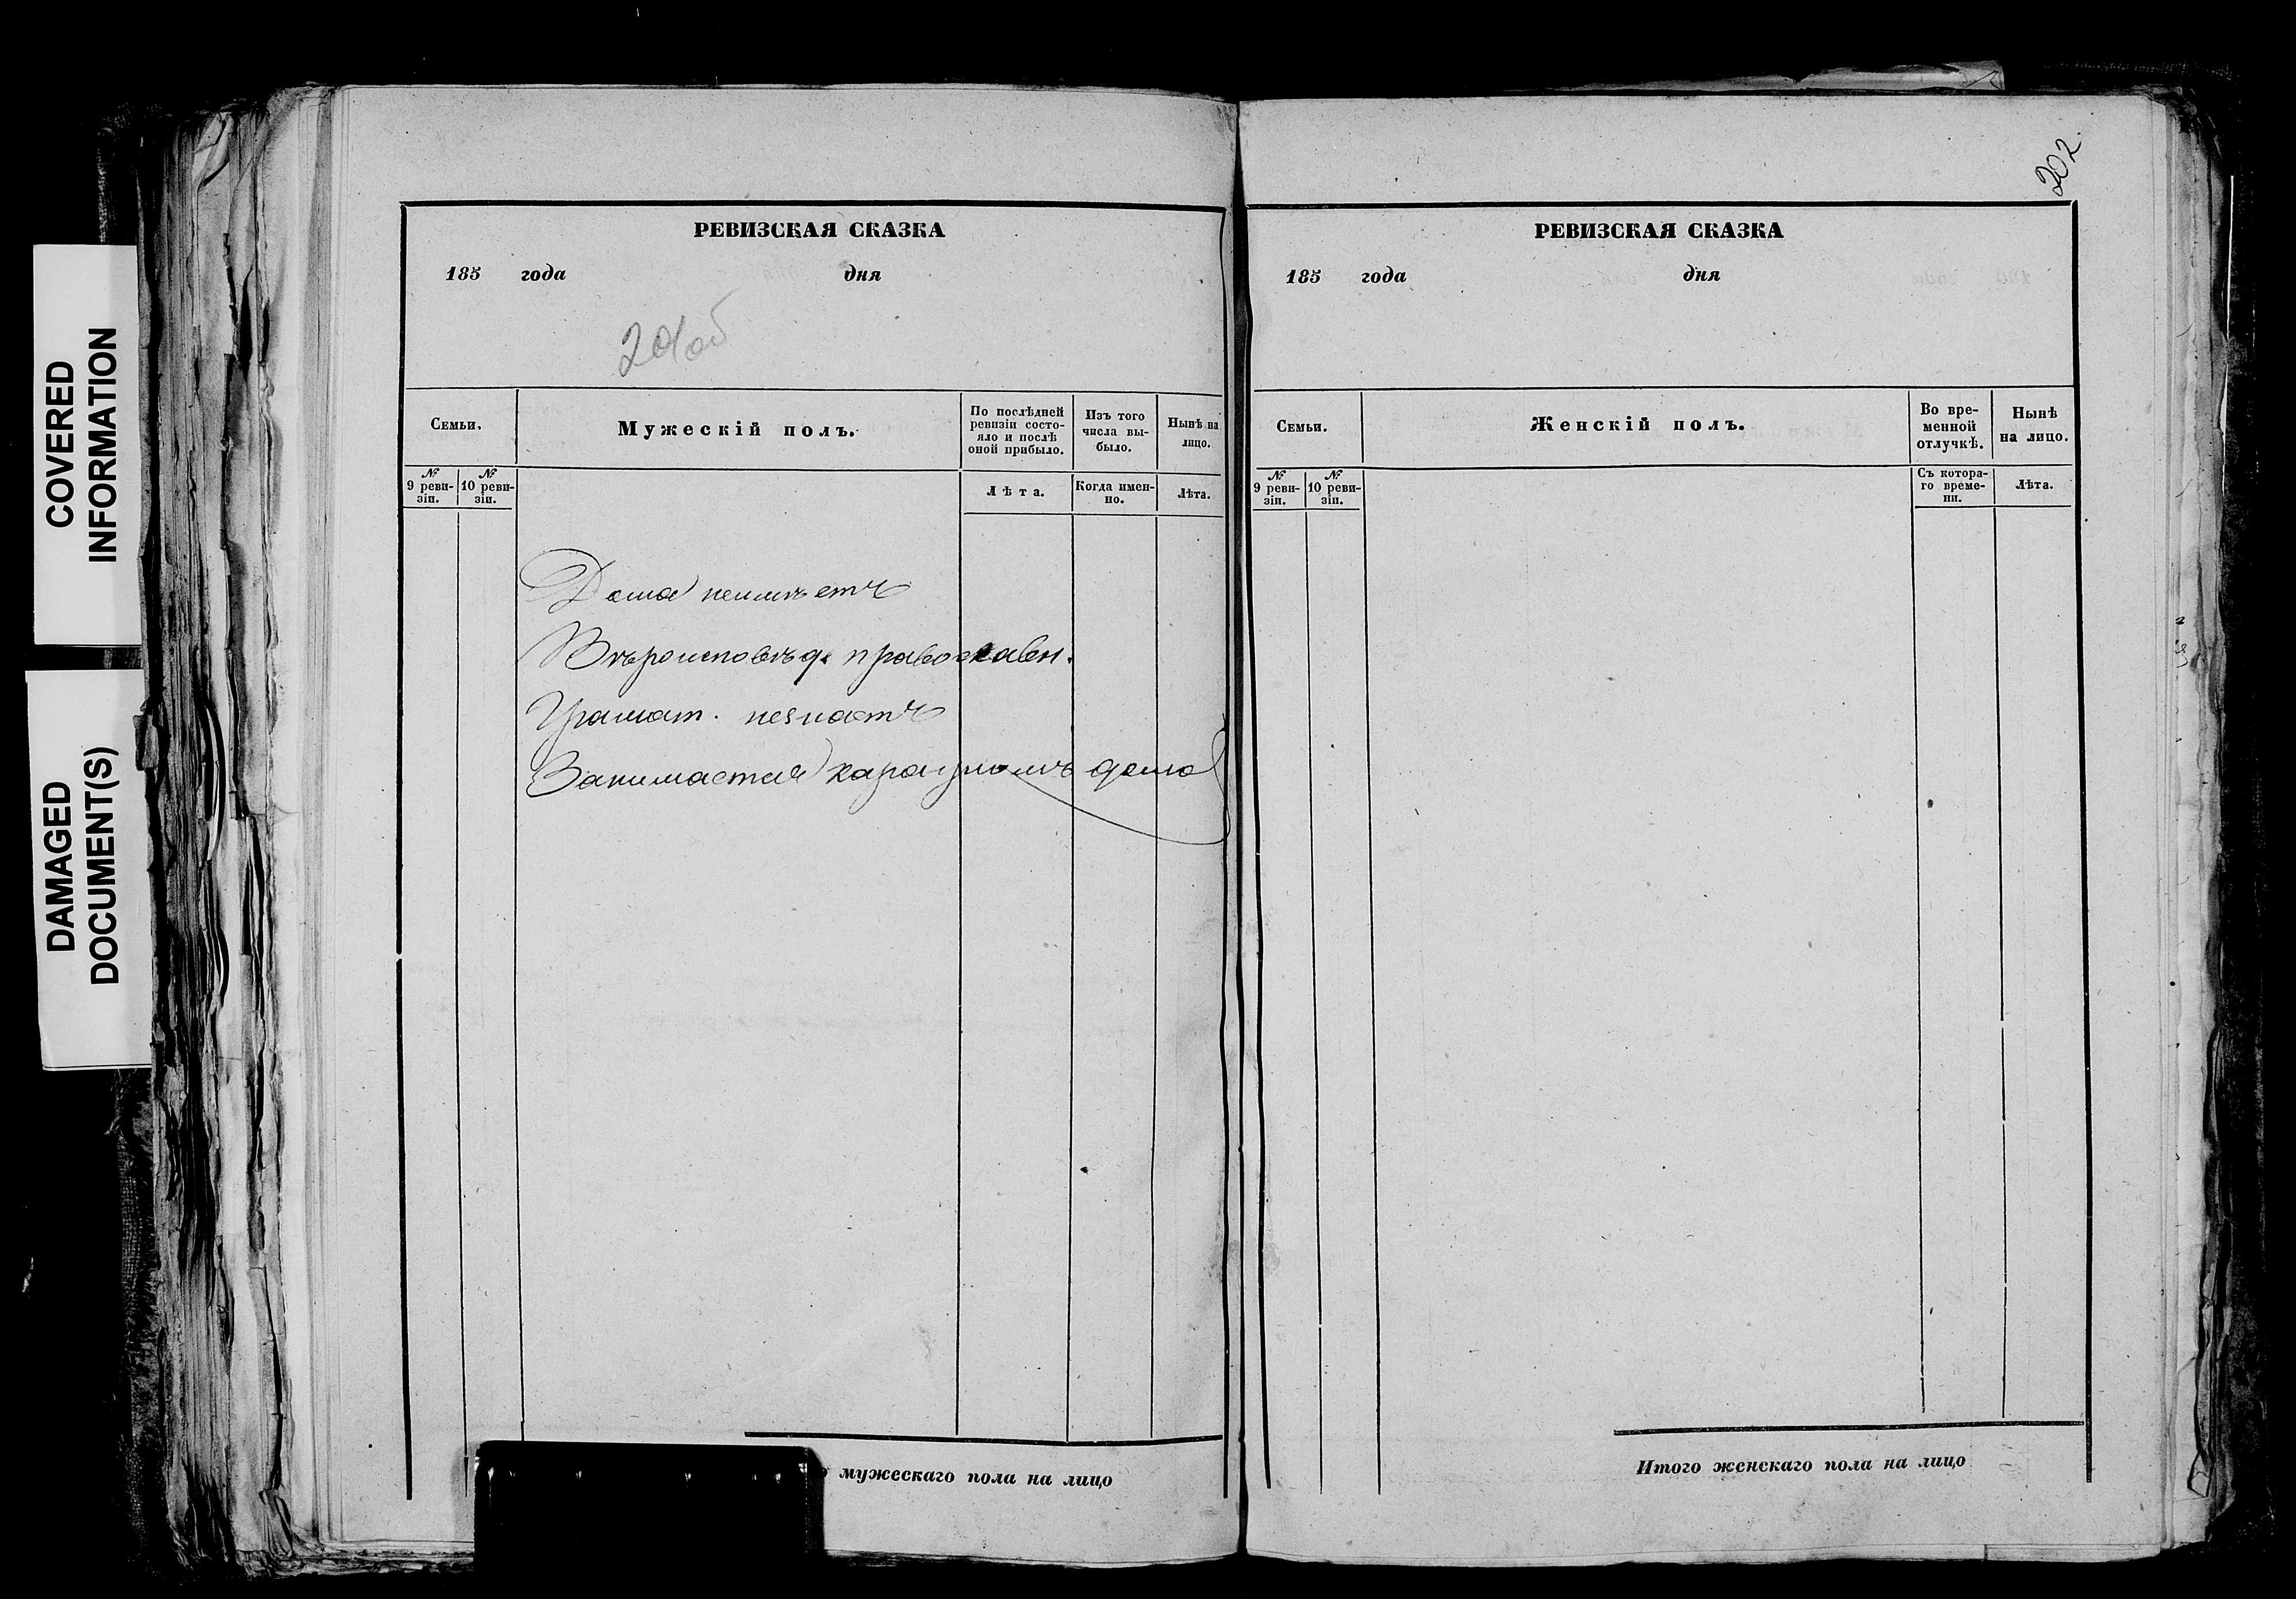 COVERED
INFORMATION
DAMAGED
DOCUMENT(S)
РЕВИЗСКАЯ СКАЗКА
185 года дня
201об
Семьи.
Мужескій полъ.
По послѣдней
ревизіи состо-
яло и послѣ
оной прибыло.
Изъ того
числа вы-
было.
Нынѣ на
лицо.
№
9 реви-
зіи.
№
10 реви-
зіи.
Лѣта.
Когда имен-
но.
Лѣта.
Дома неимѣетъ
Вѣроисповѣд. православн.
Грамат. незнаетъ
Занимается карауломъ дома
мужескаго пола на лицо
202.
РЕВИЗСКАЯ СКАЗКА
185 года дня
Семьи.
Женскій полъ.
Во вре-
менной
отлучкѣ.
Нынѣ
на лицо.
№
9 реви-
зіи.
№
10 реви-
зіи.
Съ котора-
го време-
ни.
Лѣта.
Итого женскаго пола на лицо